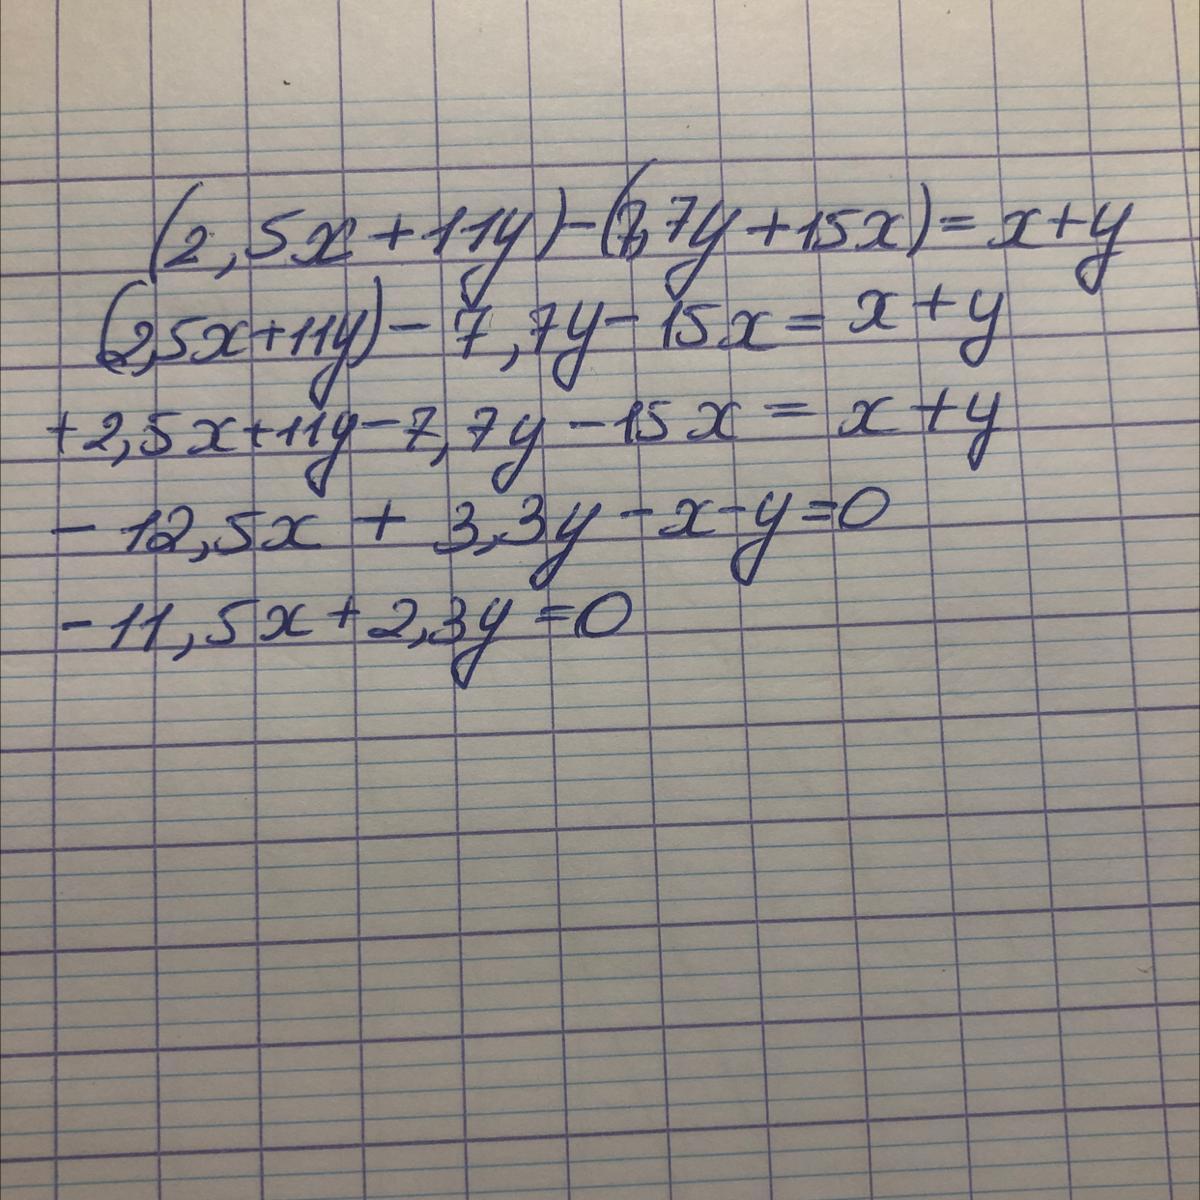 (2,5x+11y)-(7,7y+15x)=x+y
(2,5x+11y)-7,7y-15x=x+y
+2,5x+11y-7,7y-15x=x+y
-12,5x+3,3y-x-y=0
-11,5x+2,3y=0